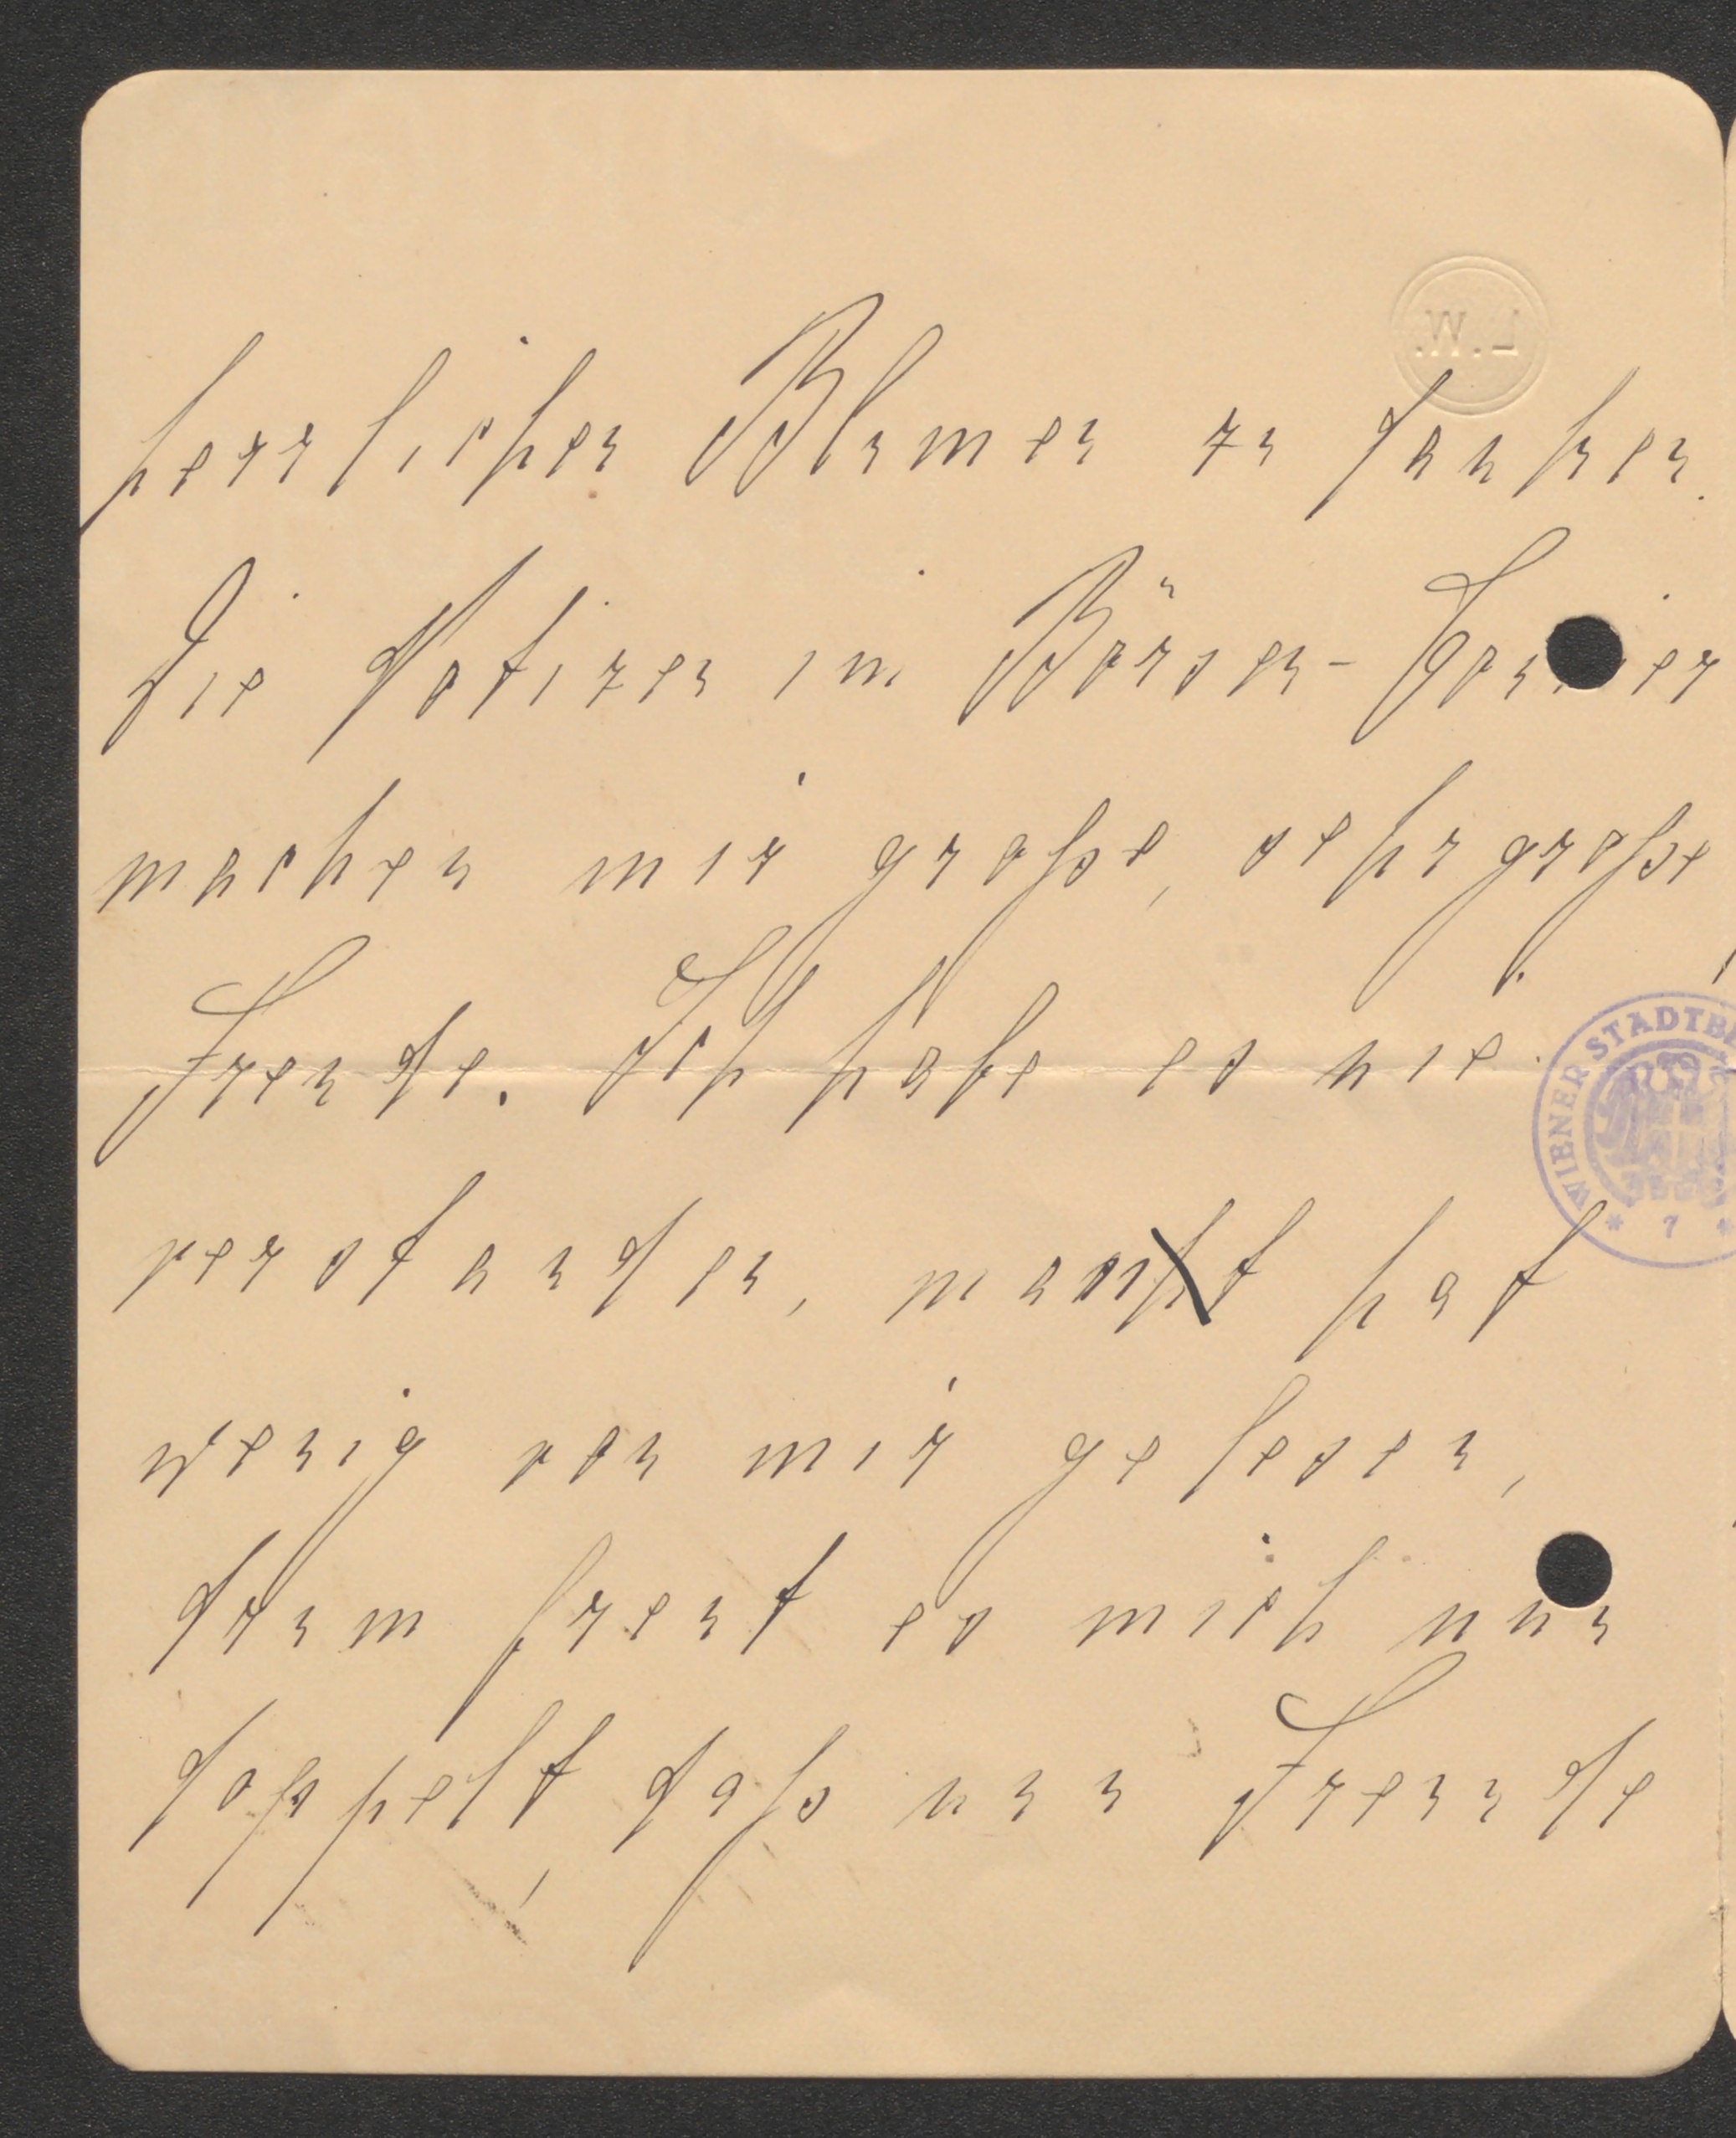 L.W.
herrlichen Blumen zu danken.
Die Notizen im Börsen-Courier
machen mir große, sehr große
Freude. Ich habe es nie
verstanden, man hat
wenig von mir gelesen,
drum freut es mich nun
doppelt, daß nun Freunde
WIENER STADTB
* 7 *